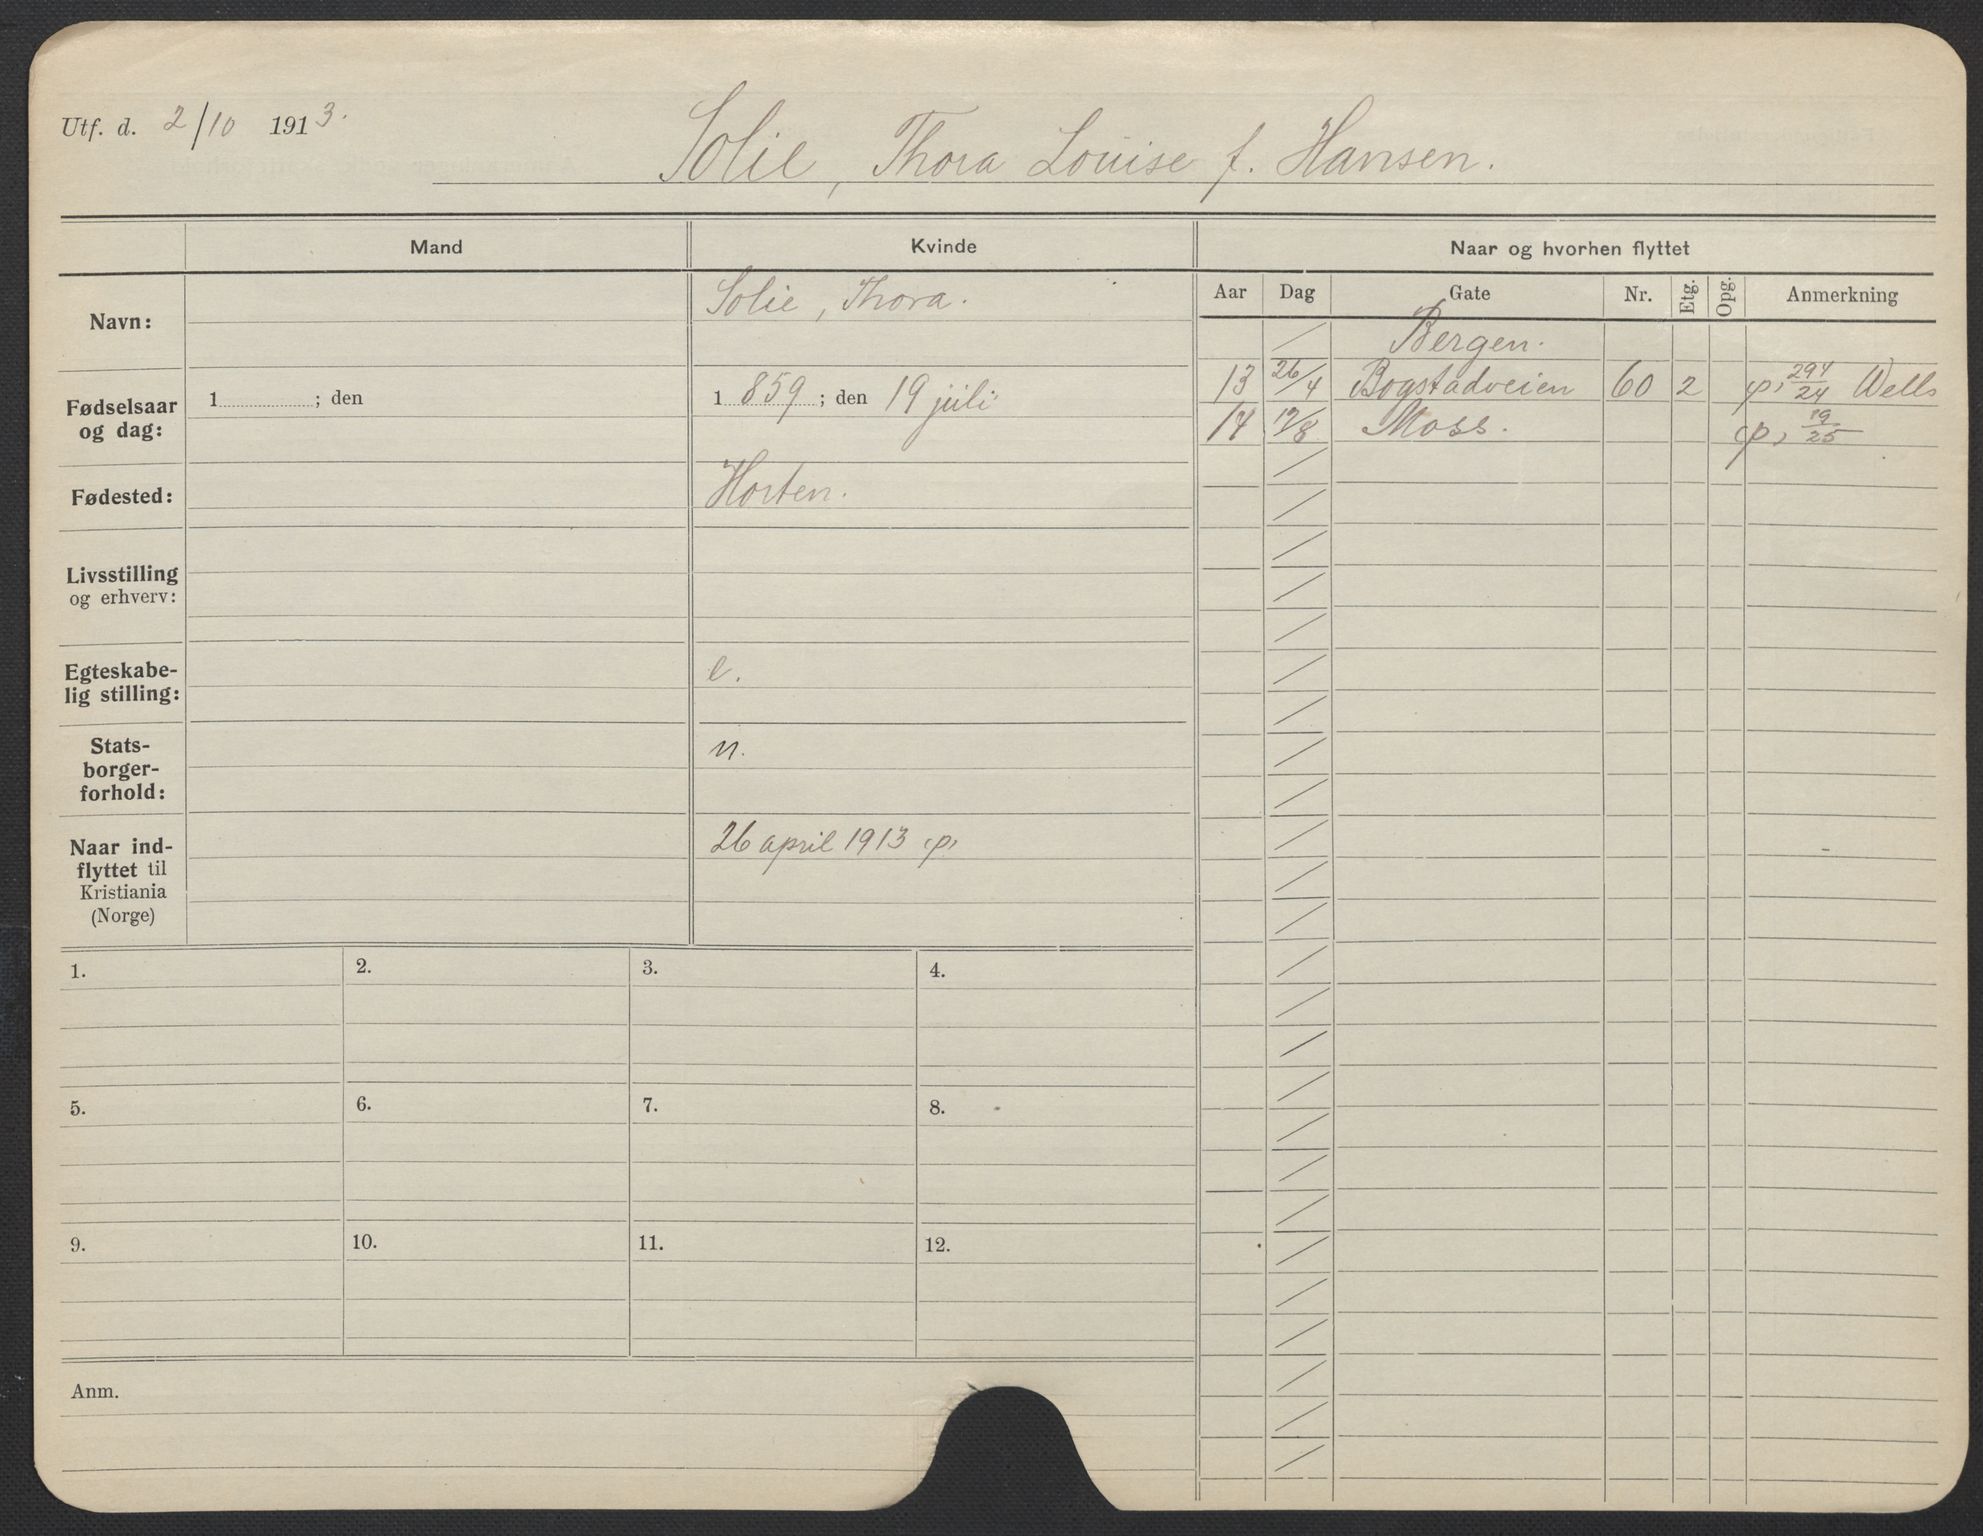 Utf. d. 2/10 1913.
Solie, Thora Louise f. Hansen.
Mand
Kvinde
Naar og hvorhen flyttet
Navn:
Solie, Thora.
Fødselsaar
og dag:
1 ; den
1 859 ; den 19 juli
Fødested:
Horten.
Livsstilling
og erhverv:
Egteskabe-
lig stilling:
e.
Stats-
borger-
forhold:
n.
Naar ind-
flyttet til
Kristiania
(Norge)
26 april 1913 p,
Aar Dag Gate Nr. Etg. Opg. Anmerkning
Bergen.
13 26/4 Bogstadveien 60 2 p, 294/24 Wells
14 /8 Moss. p, 19/25
1.
2.
3.
4.
5.
6.
7.
8.
9.
10.
11.
12.
Anm.